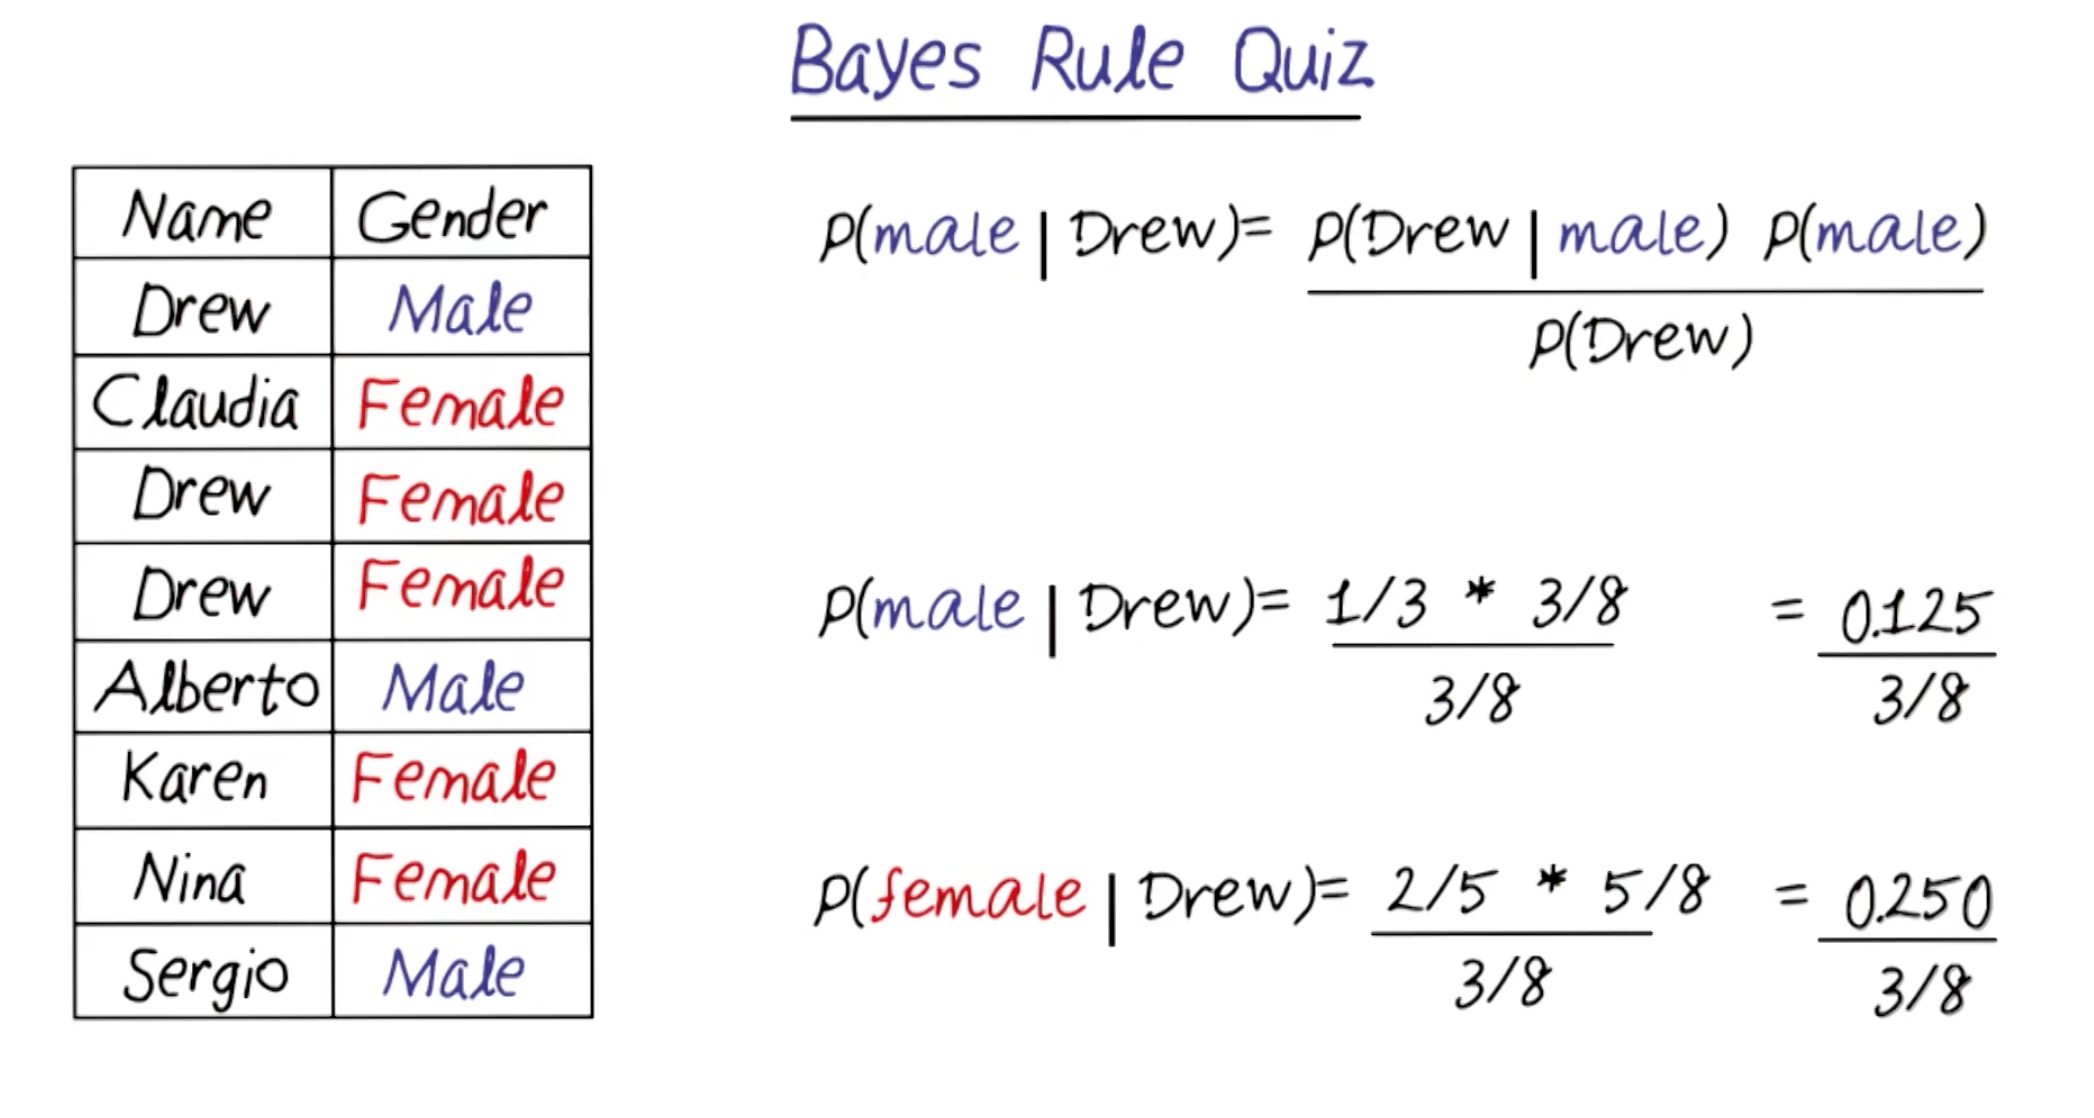 Bayes Rule Quiz
Name Gender
Drew Male
Claudia Female
Drew Female
Drew Female
Alberto Male
Karen Female
Nina Female
Sergio Male
p(male | Drew)= p(Drew | male) p(male)
p(Drew)
p(male | Drew)= 1/3 * 3/8 = 0.125
3/8 3/8
p(female | Drew)= 2/5 * 5/8 = 0.250
3/8 3/8